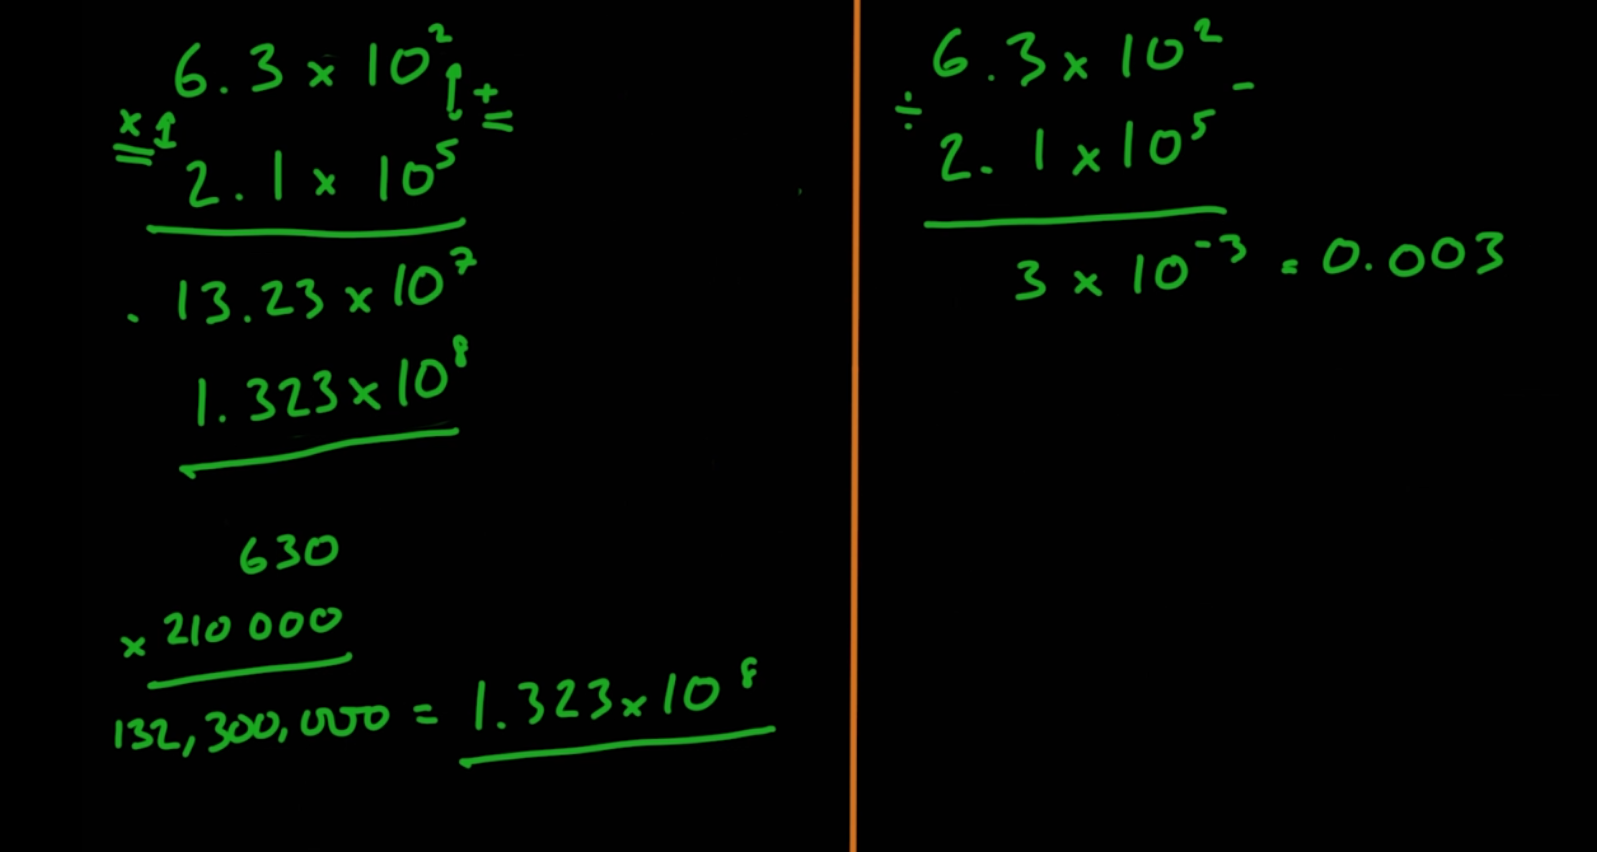 6.3 x 10²
↑ +
x ↑
2.1 x 10⁵
13.23 x 10⁷
1.323 x 10⁸
630
x 210 000
132,300,000 = 1.323 x 10⁸
6.3 x 10² -
÷
2.1 x 10⁵
3 x 10⁻³ = 0.003